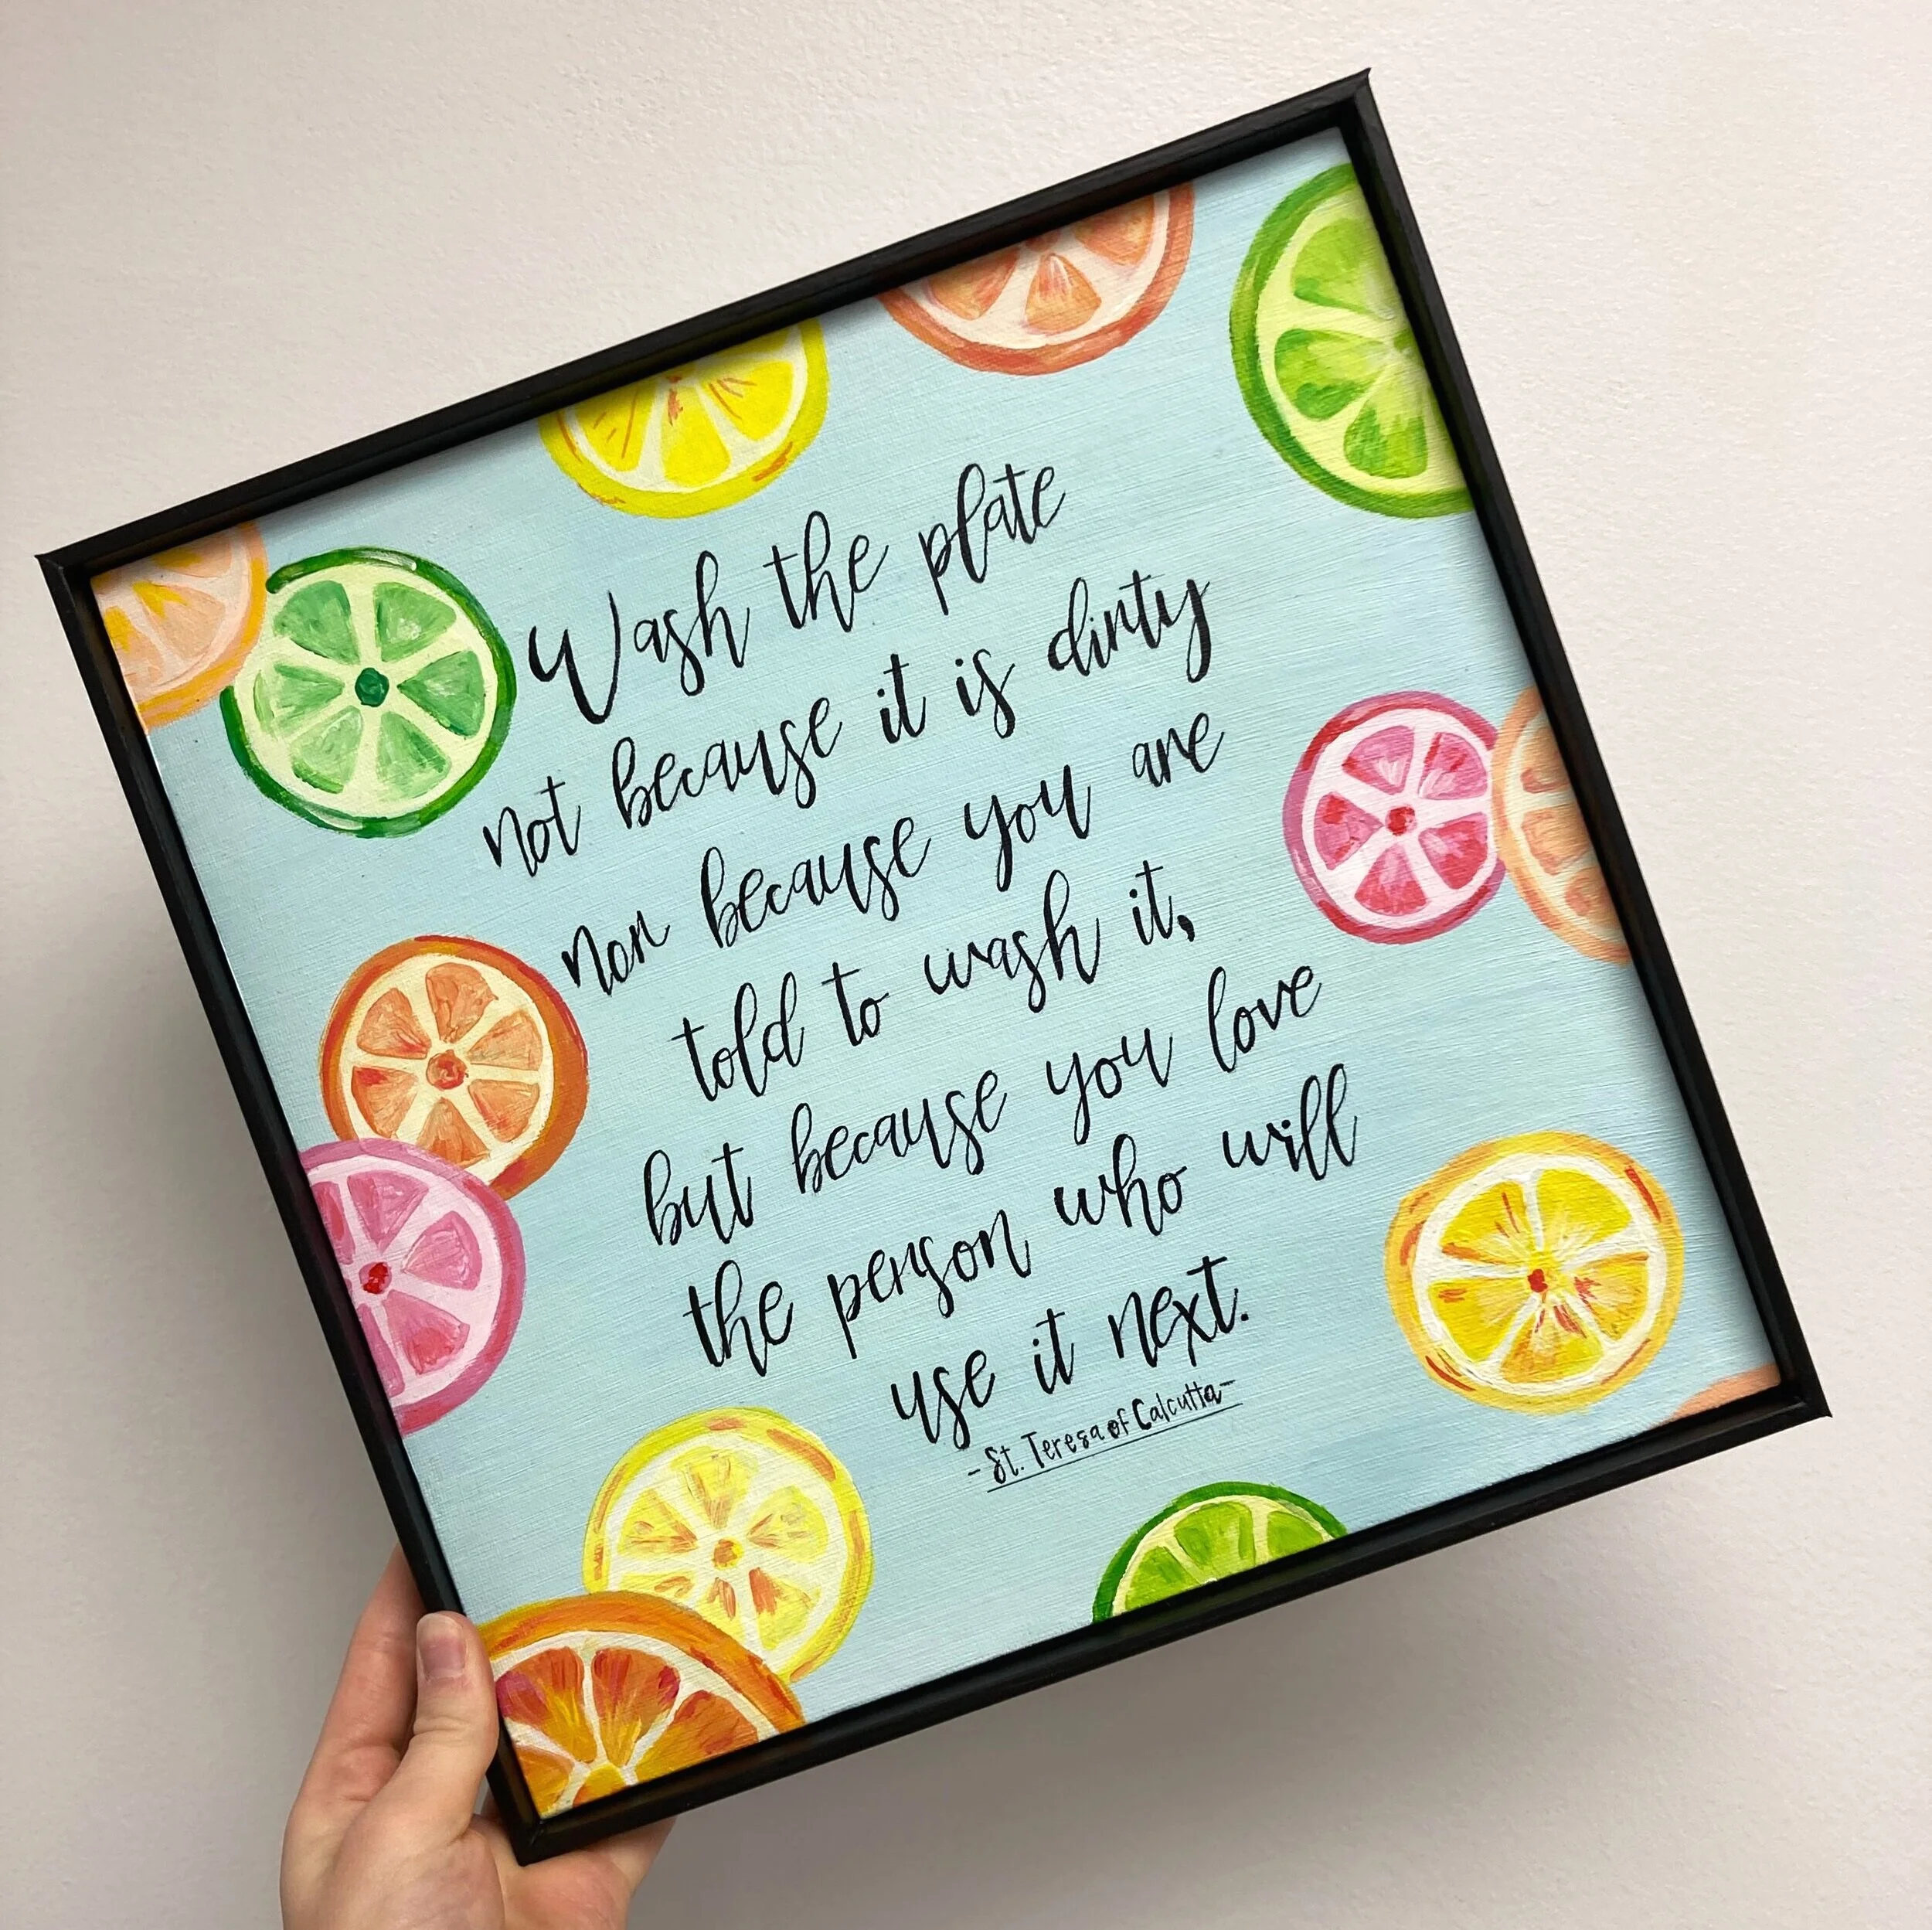 Wash the plate
not because it is dirty
nor because you are
told to wash it,
but because you love
the person who will
use it next.
-St. Teresa of Calcutta-